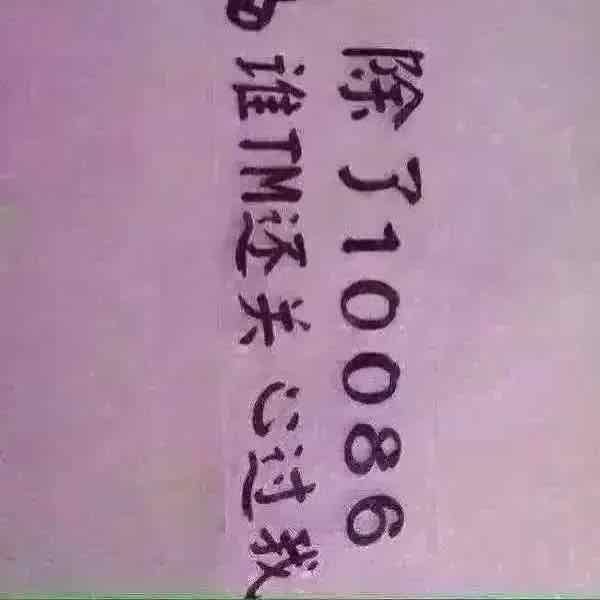 除了10086
谁TM还关心过我